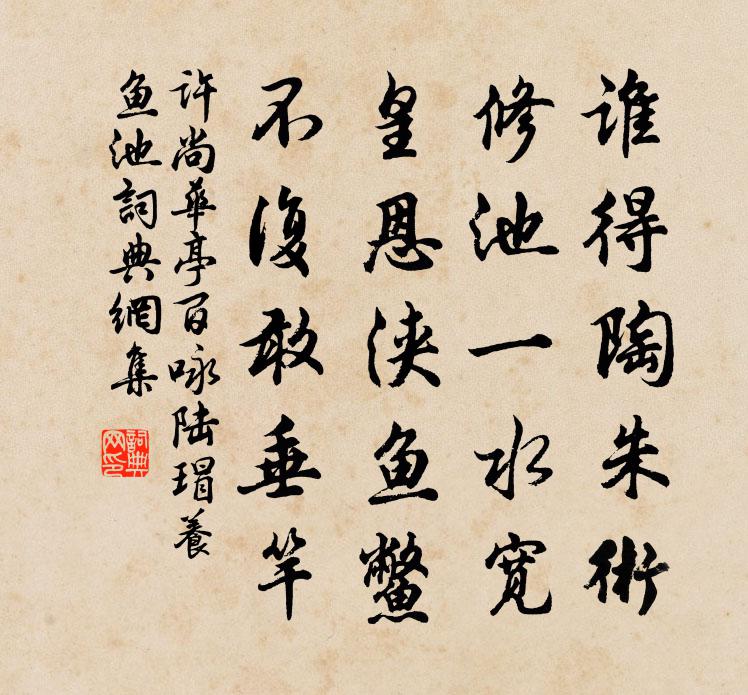 谁得陶朱術
修池一水宽
皇恩浃鱼鳖
不復敢垂竿
许尚華亭百咏陆瑁養
鱼池詞典網集
詞典网印